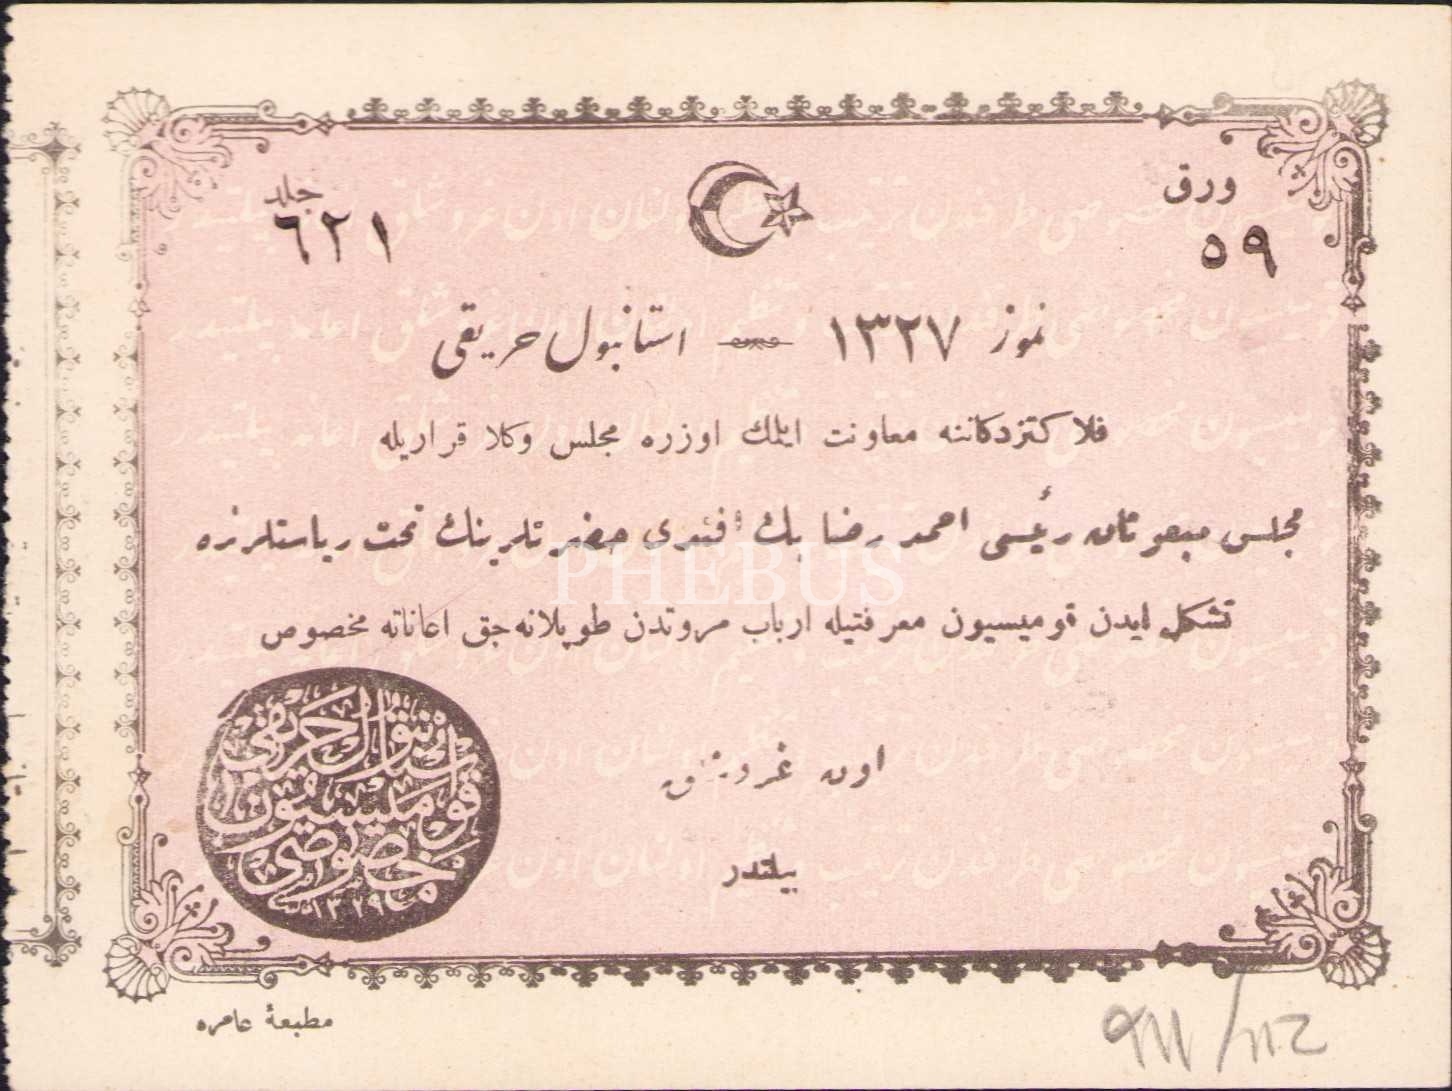 ورق
٥٩
جلد
٦٢١
تموز ١٣٢٧ — استانبول حريقى
فلاكتزدكاننه معاونت ايتمك اوزره مجلس وكلا قراريله
مجلس مبعوثان رئيسى احمد رضا بك افندى حضرتلرينك تحت رياستلرنده
تشكل ايدن قوميسيون معرفتيله ارباب مروتدن طوپلانه جق اعاناته مخصوص
اون غروشلق
بيلتدر
استانبول حريقى
قوميسيون
مخصوصى
١٣٢٩
مطبعهٔ عامره
PHEBUS